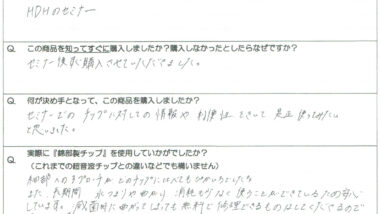 HDHのセミナー
Q. この商品を知ってすぐに購入しましたか？購入しなかったとしたらなぜですか？
セミナー後すぐ購入させていただきました。
Q. 何が決め手となって、この商品を購入しましたか？
セミナーでの チップに対しての 情報や 利便性 をきいて 是非 使ってみたい
と思いました。
Q. 実際に『錦部製チップ』を使用していかがでしたか？
（これまでの超音波チップとの違いなどでも構いません）
細部への アプローチが どのチップに
また、長期間
しています。滅菌時に 曲がってしまっても 無料で 修理できる